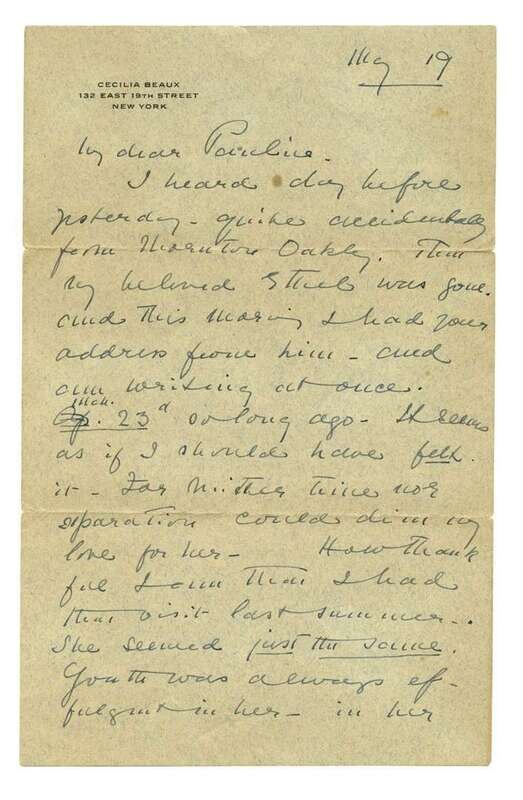 May 19
CECILIA BEAUX
132 EAST 19TH STREET
NEW YORK
My dear Pauline.
I heard day before
yesterday - quite accidentally
from Thornton Oakley. That
my beloved Ethel was gone.
and this morning I had your
address from him - and
am writing at once.
Mch.
Ap. 23d so long ago - It seems
as if I should have felt
it - For neither time nor
separation could dim my
love for her - How thank
ful I am that I had
that visit last summer..
She seemed just the same.
Youth was always ef-
fulgent in her - in her